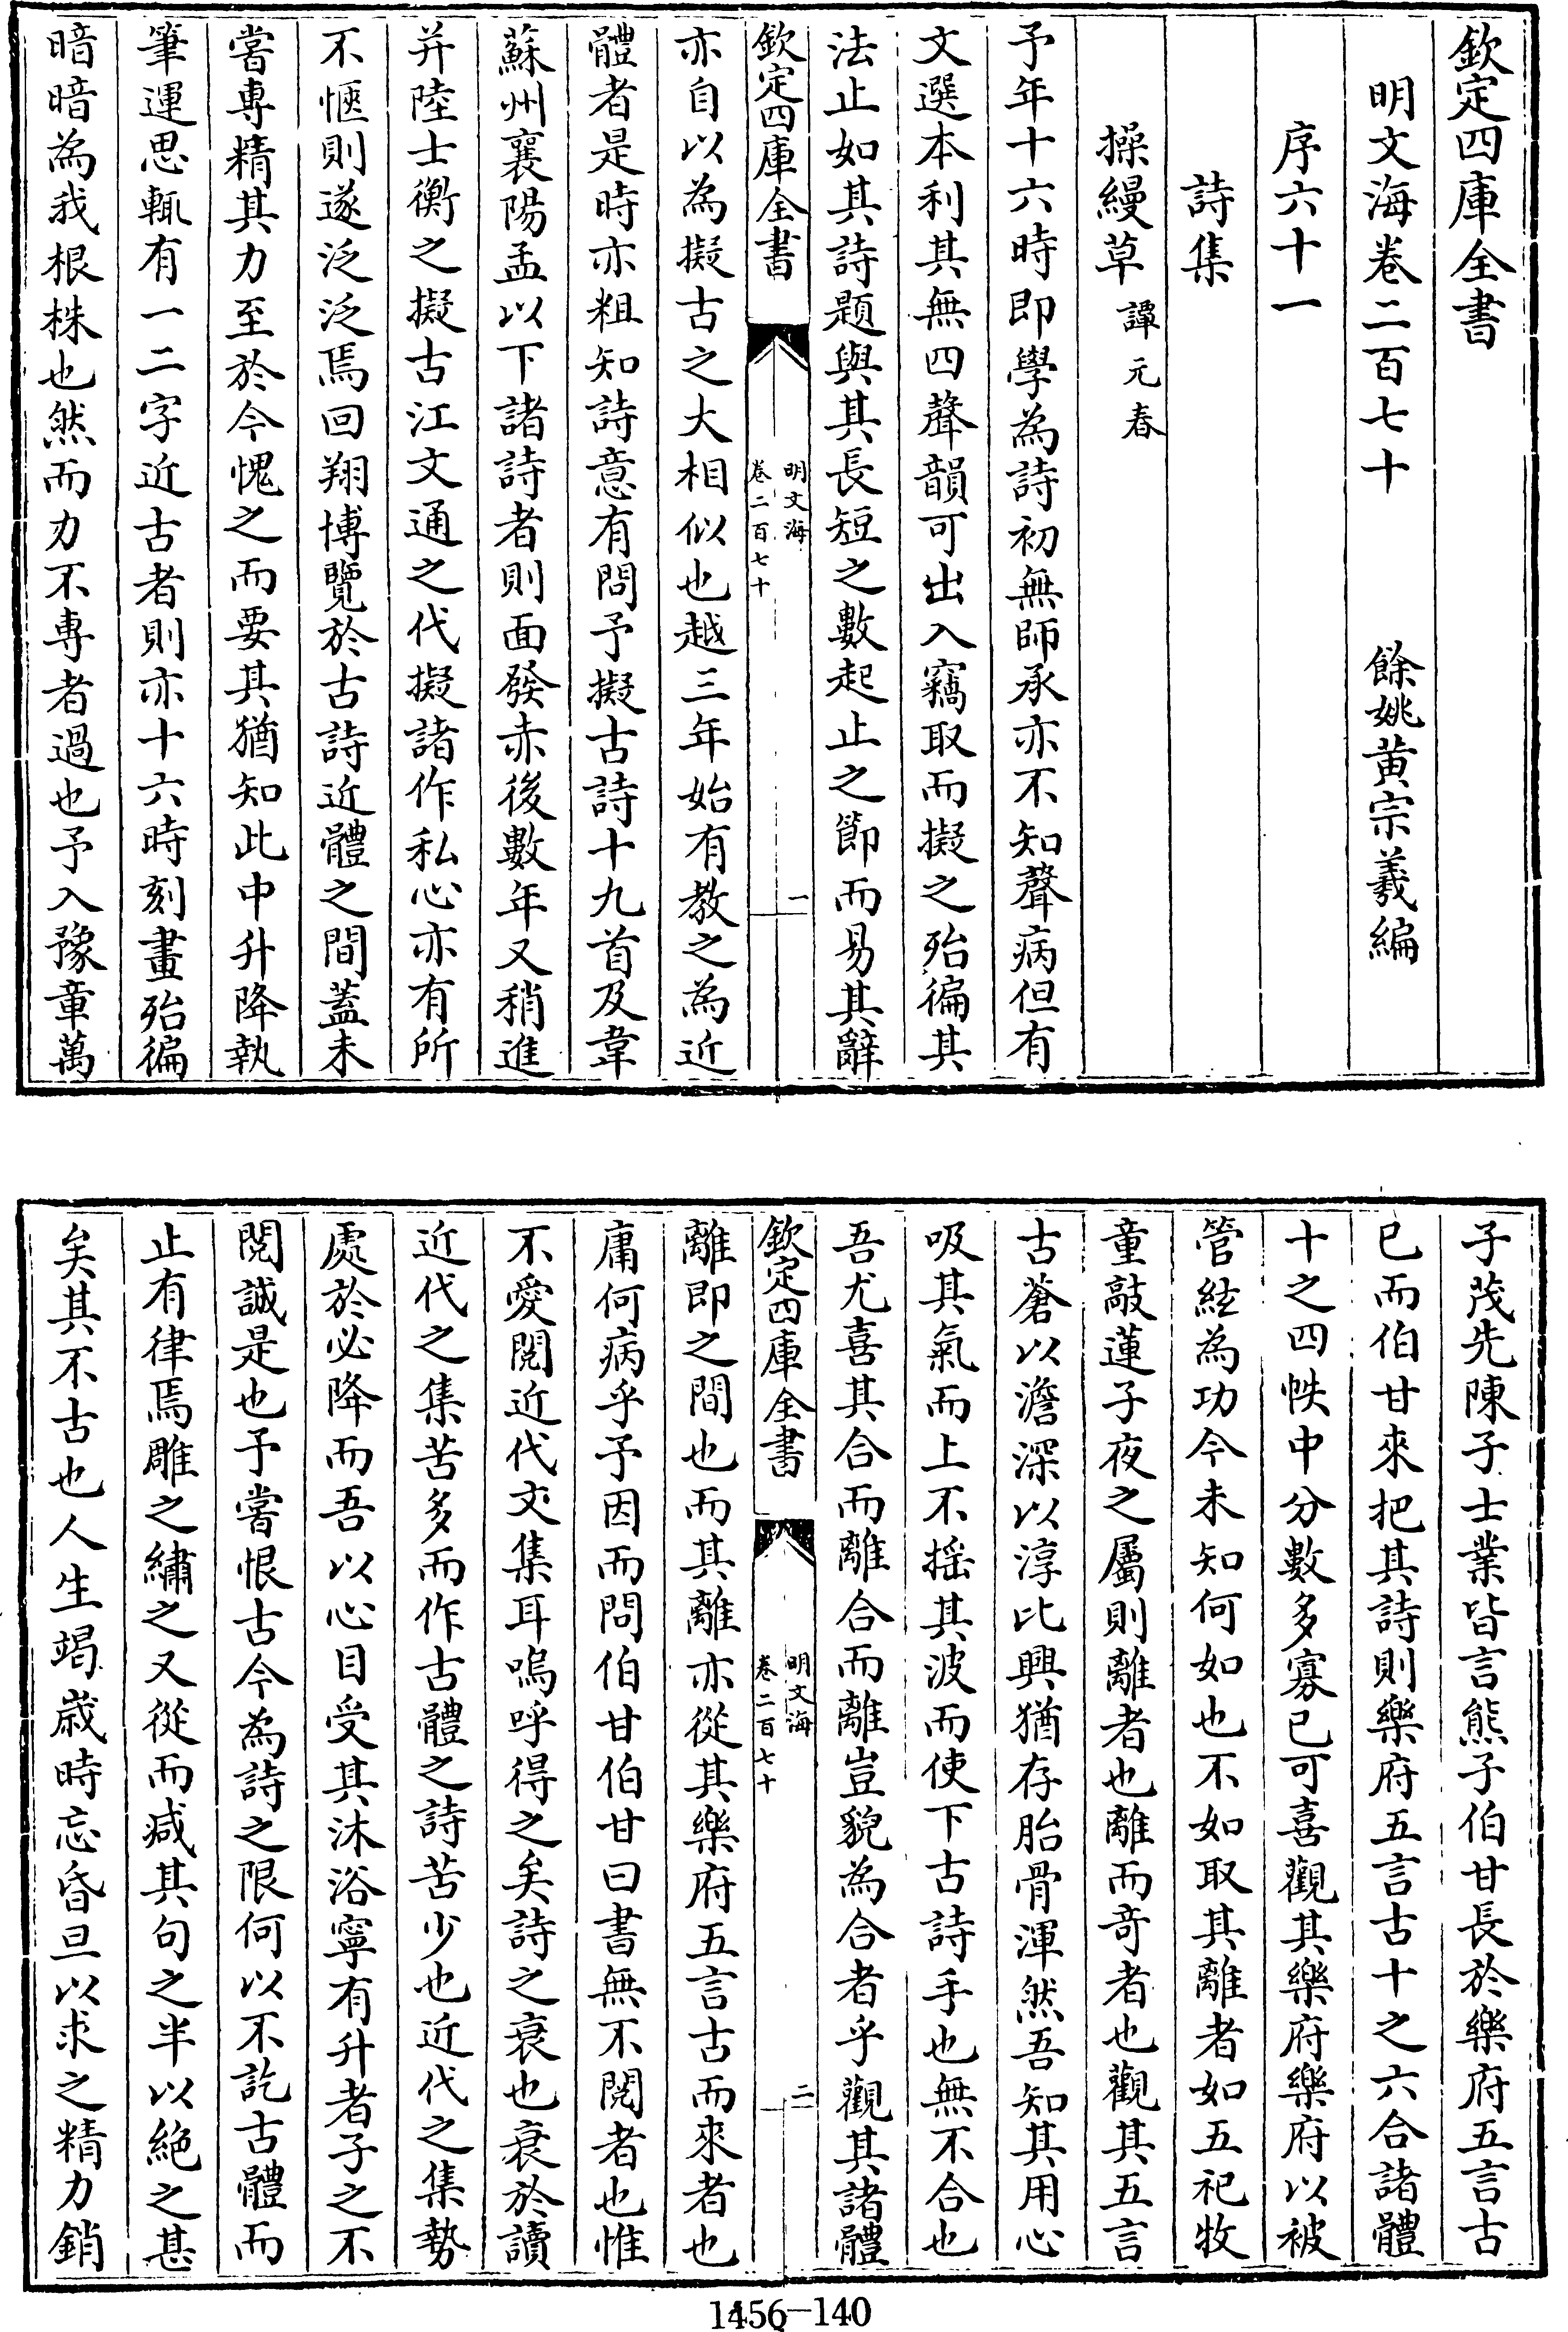 欽定四庫全書
明文海卷二百七十　餘姚黃宗羲編
序六十一
詩集
操縵草　譚元春
予年十六時即學為詩初無師承亦不知聲病但有
文選本利其無四聲韻可出入竊取而擬之殆徧其
法止如其詩題與其長短之數起止之節而易其辭
欽定四庫全書　明文海　卷二百七十　一
亦自以為擬古之大相似也越三年始有教之為近
體者是時亦粗知詩意有問予擬古詩十九首及韋
蘇州襄陽孟以下諸詩者則面發赤後數年又稍進
并陸士衡之擬古江文通之代擬諸作私心亦有所
不愜則遂泛泛焉回翔博覽於古詩近體之間蓋未
嘗專精其力至於今愧之而要其猶知此中升降執
筆運思輒有一二字近古者則亦十六時刻畫殆徧
暗暗為我根株也然而力不專者過也予入豫章萬
子茂先陳子士業皆言熊子伯甘長於樂府五言古
已而伯甘來把其詩則樂府五言古十之六合諸體
十之四帙中分數多寡已可喜觀其樂府樂府以被
管絃為功今未知何如也不如取其離者如五祀牧
童敲蓮子夜之屬則離者也離而奇者也觀其五言
古蒼以澹深以淳比興猶存胎骨渾然吾知其用心
吸其氣而上不揺其波而使下古詩手也無不合也
吾尤喜其合而離合而離豈貌為合者乎觀其諸體
欽定四庫全書　明文海　卷二百七十　二
離即之間也而其離亦從其樂府五言古而來者也
庸何病乎予因而問伯甘伯甘曰書無不閱者也惟
不愛閱近代文集耳嗚呼得之矣詩之衰也衰於讀
近代之集苦多而作古體之詩苦少也近代之集勢
處於必降而吾以心目受其沐浴寧有升者子之不
閱誠是也予嘗恨古今為詩之限何以不訖古體而
止有律焉雕之繡之又從而減其句之半以絕之甚
矣其不古也人生竭歲時忘昏旦以求之精力銷
1456-140